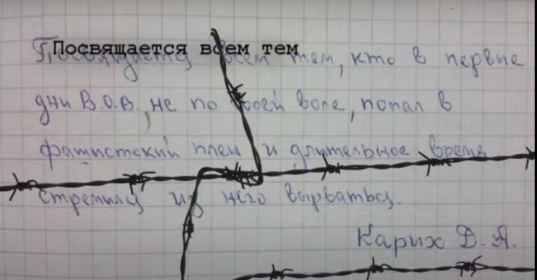 Посвящается всем тем
Посвящается всем тем, кто в первые
дни В.О.В., не по своей воле, попал в
фашистский плен и длительное время
стремился из него вырваться.
Карих Д. А.